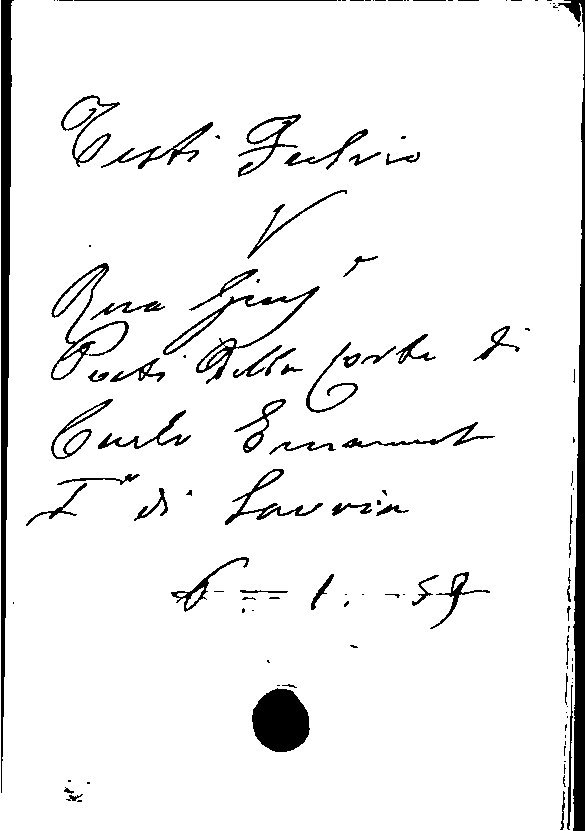 Testi Fulvio
V
Rua Gius.e
Poeti Della Corte di
Carlo Emanuel
I° di Savoia
6 = 1. - 59